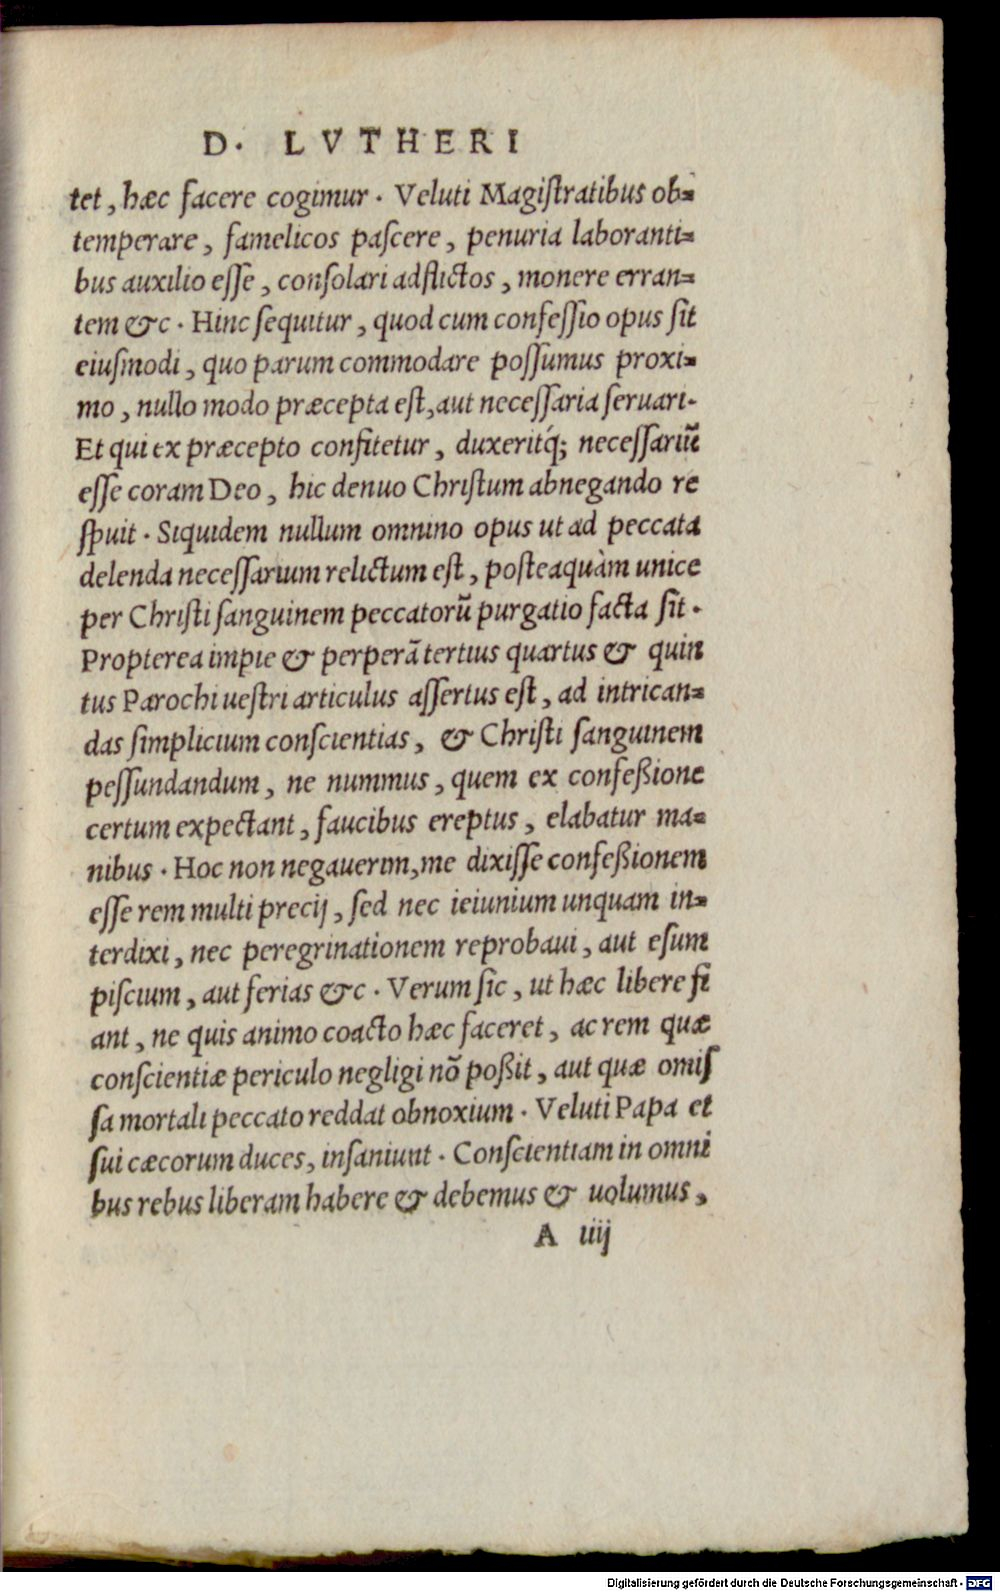 D. LVTHERI
tet, hæc facere cogimur. Veluti Magiſtratibus ob=
temperare, famelicos paſcere, penuria laboranti=
bus auxilio eſſe, conſolari adflictos, monere erran=
tem &c. Hinc ſequitur, quod cum confeſſio opus ſit
eiuſmodi, quo parum commodare poſſumus proxi=
mo, nullo modo præcepta eſt, aut neceſſaria ſeruari.
Et qui ex præcepto confitetur, duxeritq́; neceſſariũ
eſſe coram Deo, hic denuo Chriſtum abnegando re
ſpuit. Siquidem nullum omnino opus ut ad peccata
delenda neceſſarium relictum eſt, poſteaquàm unice
per Chriſti ſanguinem peccatorũ purgatio facta ſit.
Propterea impie & perperã tertius quartus & quin
tus Parochi ueſtri articulus aſſertus eſt, ad intrican=
das ſimplicium conſcientias, & Chriſti ſanguinem
peſſundandum, ne nummus, quem ex confeßione
certum expectant, faucibus ereptus, elabatur ma=
nibus. Hoc non negauerim, me dixiſſe confeßionem
eſſe rem multi precij, ſed nec ieiunium unquam in=
terdixi, nec peregrinationem reprobaui, aut eſum
piſcium, aut ferias &c. Verum ſic, ut hæc libere fi
ant, ne quis animo coacto hæc faceret, ac rem quæ
conſcientiæ periculo negligi nõ poßit, aut quæ omiſ
ſa mortali peccato reddat obnoxium. Veluti Papa et
ſui cæcorum duces, inſaniunt. Conſcientiam in omni
bus rebus liberam habere & debemus & uolumus,
A iiij
Digitalisierung gefördert durch die Deutsche Forschungsgemeinschaft - DFG